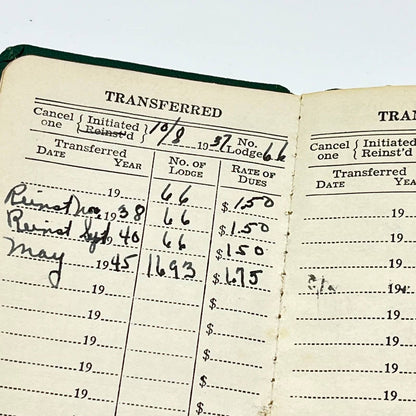 TRANSFERRED
Cancel one { Initiated Reinst'd } 10/8 1937 No. Lodge 66
Transferred
DATE YEAR
No. OF LODGE
RATE OF DUES
19 66 $ 1.50
Reinst Nov 1938 66 $ 1.50
Reinst Sept 1940 66 $ 1.50
May 1945 1693 $ 1.75
19 $
19 $
19 $
19 $
19 $
TRAN
Cancel one { Initiated Reinst'd
Transferred
DATE YEAR
19
19
19
19
19
19
19
19